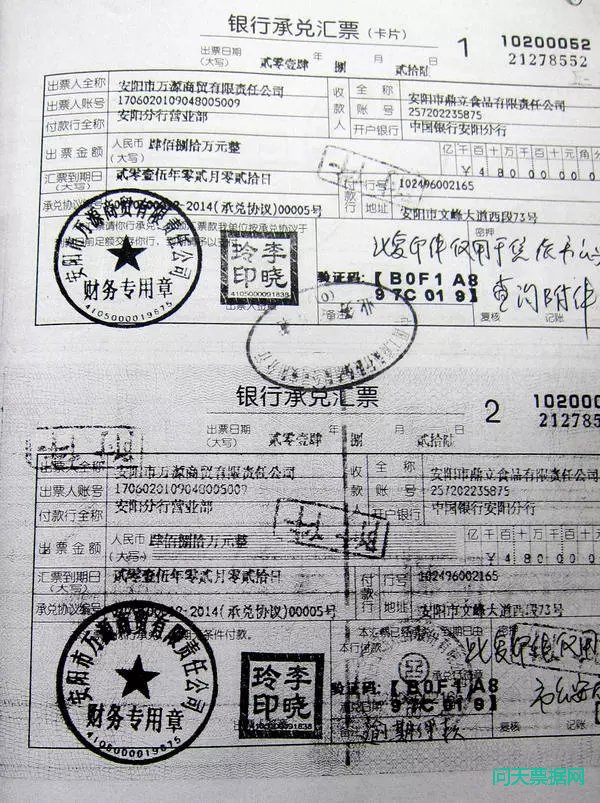 银行承兑汇票（卡片） 1 10200052
21278552
出票日期（大写） 贰零壹肆 年 捌 月 贰拾陆 日
出票人全称 安阳市万源商贸有限责任公司 收款人 全称 安阳市鼎立食品有限责任公司
出票人账号 1706020109048005009 账号 257202235875
付款行全称 安阳分行营业部 开户银行 中国银行安阳分行
出票金额 人民币（大写） 肆佰捌拾万元整 亿千百十万千百十元角分
¥ 4 8 0 0 0 0
汇票到期日（大写） 贰零壹伍年零贰月零贰拾日 付款行 行号 102496002165
承兑协议编号 -2014(承兑协议)00005号 地址 安阳市文峰大道西段73号
安阳市万源商贸有限责任公司
财务专用章
4105000019875
李晓玲印
4105000091838
出票人签章
密押
验证码：【B0F1 A8
97C0 19】
此复印件仅用于
查询附件
备注
复核 记账
银行承兑汇票 2 102000
212785
出票日期（大写） 贰零壹肆 年 捌 月 贰拾陆
出票人全称 安阳市万源商贸有限责任公司 收款人 全称 安阳市鼎立食品有限责任公司
出票人账号 1706020109048005009 账号 257202235875
付款行全称 安阳分行营业部 开户银行 中国银行安阳分行
出票金额 人民币（大写） 肆佰捌拾万元整 亿千百十万千百十元
¥ 4 8 0 0 0
汇票到期日（大写） 贰零壹伍年零贰月零贰拾日 付款行 行号 102496002165
承兑协议编号 -2014(承兑协议)00005号 地址 安阳市文峰大道西段73号
安阳市万源商贸有限责任公司
财务专用章
4105000019875
李晓玲印
4105000091838
验证码：【B0F1 A8
97C0 19】
承兑日期
备注
复核 记账
问天票据网